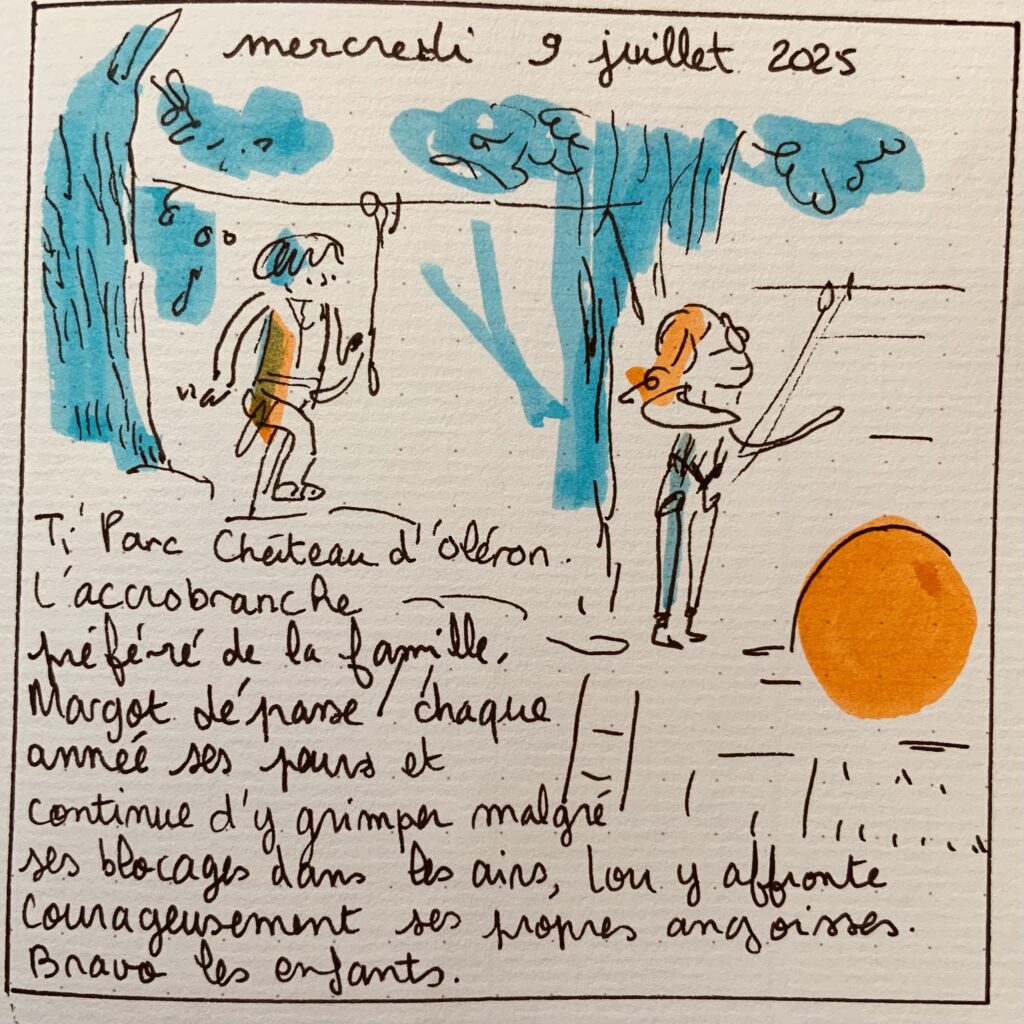 mercredi 9 juillet 2025
Ti Parc Château d'Oléron.
L'accrobranche
préféré de la famille.
Margot dépasse chaque
année ses peurs et
continue d'y grimper malgré
ses blocages dans les airs, Lou y affronte
courageusement ses propres angoisses.
Bravo les enfants.